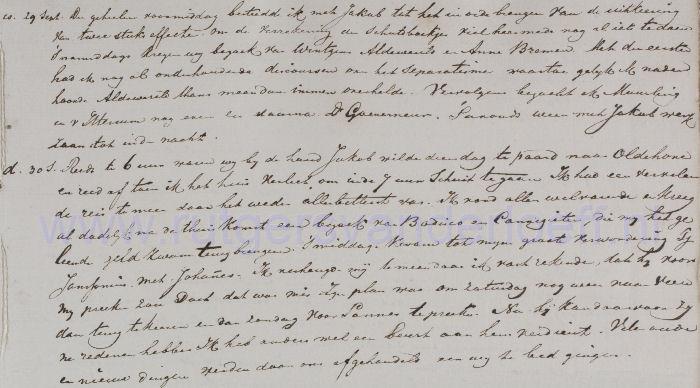 zo. 29 Sept. De geheelen voormiddag besteed ik met Jakob tot het in orde brengen van de uitkeering
van twee stuks effecten. Om de verrekening der Schutboekje viel heermede nog al iets te doen
's namiddags kregen wy bezoek van Wintgens Aldewereld en Anne Bromen. Met den eersten
had ik nog al onderhoudende discoursen over het Separatisme waartoe gelyk ik nader
hoorde Aldewereld thans meer dan immer overhelde. Vervolgens bezocht ik Muurling
en v Itterzum nog even en daarna Dr Gouverneur. 's avonds weer met Jakob werk-
zaam tot in de nacht.
d. 30 S. Reeds te 6 uur waren wy by de hand Jakob wilde dien dag te paard naar Oldehove
en reed af toen ik het huis verliet, om in de 7 uur Schuit te gaan. Ik had een vervelen-
de reis te meer daar het weder allerbetterst was. Ik vond allen welvarende en kreeg
al dadelyk na de thuiskomst een bezoek van Bodisco en Cannegieter die my het ge
leende geld kwam terugbrengen. 's middags kwam tot myne groote verwondering
Jansonius met Johannes. Ik verheugde my te meer daar ik vast rekende, dat hy voor
my preeken zou. Doch dat was mis. Zyn plan was om zaturdag nog weer naar Veere
dan terug te keeren en dan zondag voor Sannes te preeken. Nu hy kan daarvoor zy
ne redenen hebben. Ik heb anders wel een beurt aan hem verdiend. Vele oude
en nieuwe dingen werden door ons afgehandeld eer wy te bed gingen.
www.rutgersvanderloeff.nl